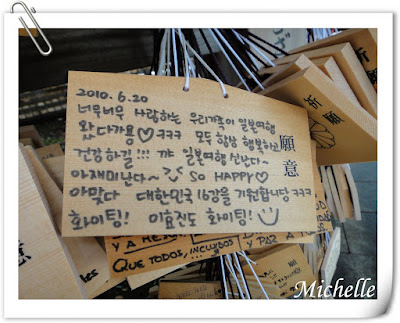 2010.6.20
너무너무 사랑하는 우리가족이 일본여행
왔다가용♡ ㅋㅋㅋ 모두 항상 행복하고
건강하길!!! 꺄 일본여행 신난다~
아재미난다~ SO HAPPY♡
아맞다 대한민국 16강을 기원합니당 ㅋㅋㅋ
화이팅! 이효진도 화이팅!
願意
祈願
QUE TODOS, INCLUIDOS
Y PAZ A
Michelle